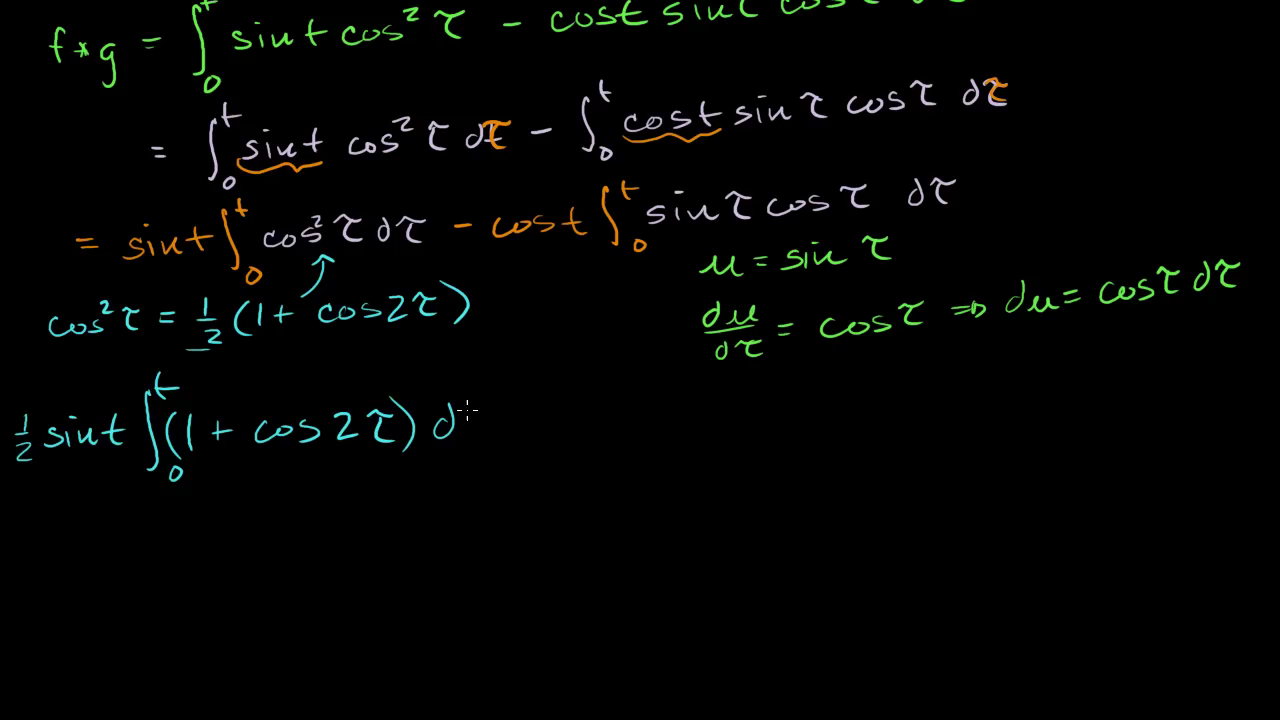 f * g = ∫₀ᵗ sin t cos² τ - cos t sin τ cos τ dτ
= ∫₀ᵗ sin t cos² τ dτ - ∫₀ᵗ cos t sin τ cos τ dτ
= sin t ∫₀ᵗ cos² τ dτ - cos t ∫₀ᵗ sin τ cos τ dτ
u = sin τ
cos² τ = 1/2 (1 + cos 2τ)
du/dτ = cos τ ⇒ du = cos τ dτ
1/2 sin t ∫₀ᵗ (1 + cos 2τ) d